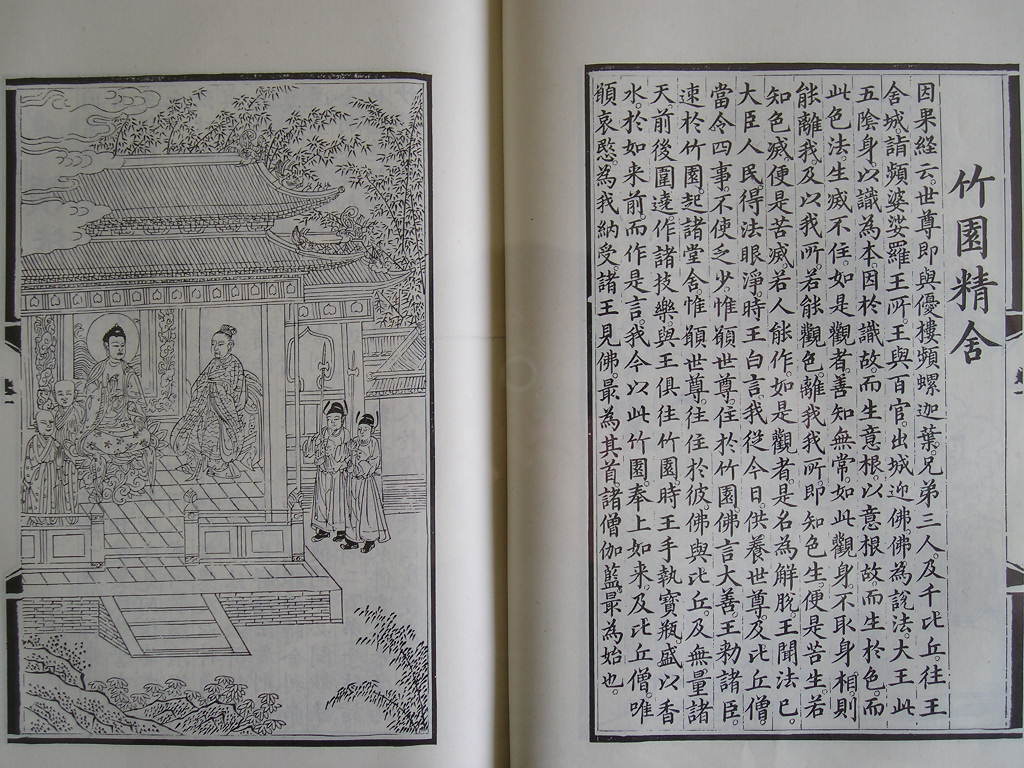 竹園精舍
因果經云。世尊即與優樓頻螺迦葉。兄弟三人。及千比丘。往王
舍城。請頻婆娑羅王所。王與百官。出城迎佛。佛為說法。大王此
五陰身。以識為本。因於識故。而生意根。以意根故。而生於色。而
此色法。生滅不住。如是觀者。善知無常。如此觀身。不取身相。則
能離我。及以我所。若能觀色。離我我所。即知色生。便是苦生。若
知色滅。便是苦滅。若人能作。如是觀者。是名為解脫。王聞法已。
大臣人民。得法眼淨。時王白言。我從今日。供養世尊。及比丘僧
當令四事。不使乏少。惟願世尊。住於竹園。佛言大善。王勅諸臣。
速於竹園。起諸堂舍。惟願世尊。往住於彼。佛與比丘。及無量諸
天。前後圍遶。作諸技樂。與王俱往竹園。時王手執寶瓶。盛以香
水。於如来前。而作是言。我今以此竹園。奉上如来。及比丘僧。唯
願哀愍。為我納受。諸王見佛。最為其首。諸僧伽藍。最為始也。